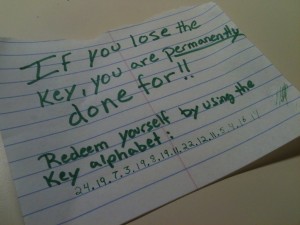 If you lose the
key, you are permanently
done for!!
Redeem yourself by using the
Key alphabet:
24, 19, 7, 3, 19, 8, 19, 11, 22, 12, 11, 5, 4,